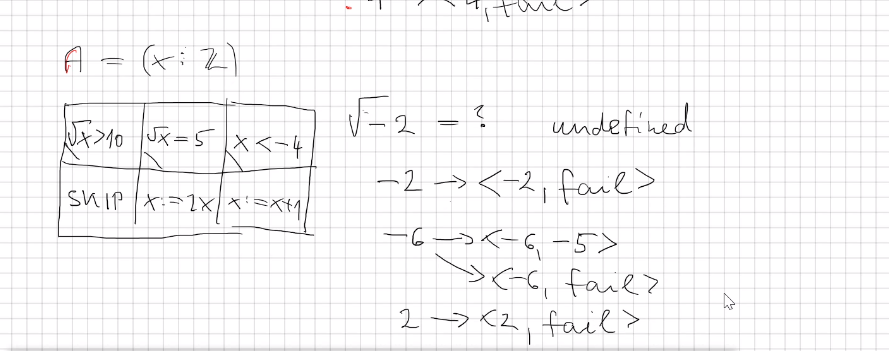 4, fail>
A = (x : ℤ)
√x>10 | √x = 5 | x < -4
SKIP | x:=2x | x:=x+1
√-2 = ? undefined
-2 → <-2, fail>
-6 → <-6, -5>
→ <-6, fail>
2 → <2, fail>